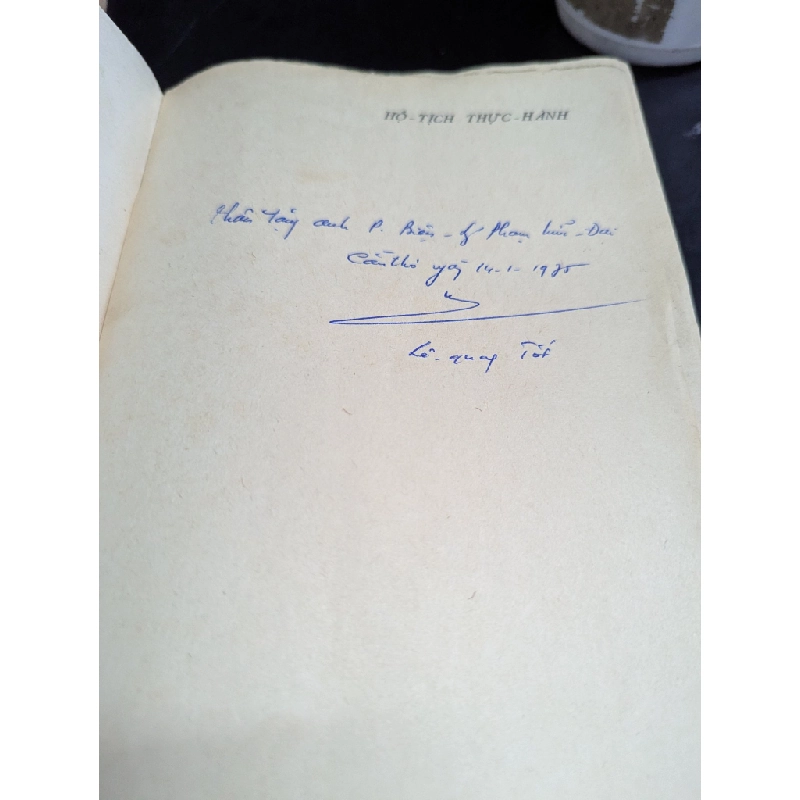 HỘ-TỊCH THỰC-HÀNH
Thân tặng anh P. Biện-lý Phạm -Đai
Cần thơ ngày 14-1-1975
Lê-quang Tốt